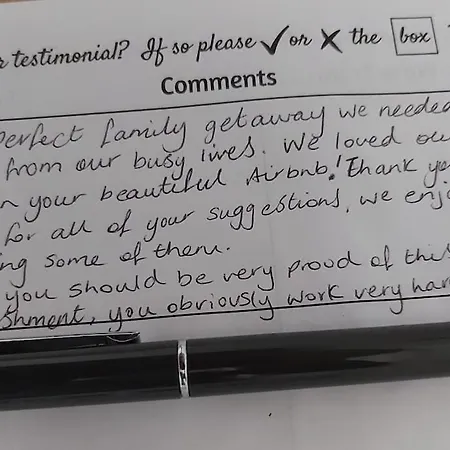 r testimonial? If so please ✓ or ✗ the box
Comments
Perfect family getaway we needed
from our busy lives. We loved ou
n your beautiful Airbnb! Thank yo
for all of your suggestions, we enjo
ng some of them.
you should be very proud of this
shment, you obviously work very har